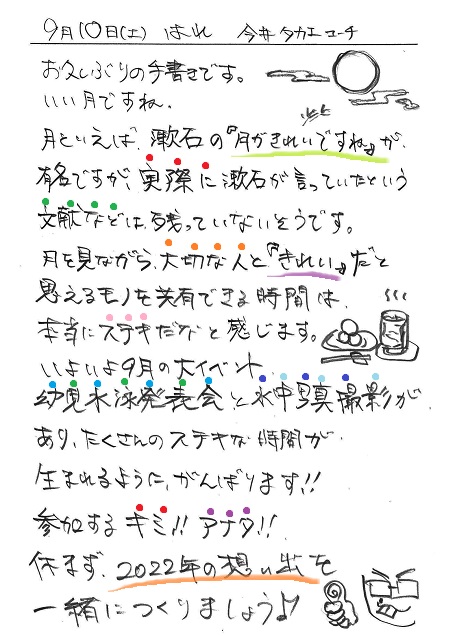 9月10日(土) はれ 今井タカエコーチ
お久しぶりの手書きです。
いい月ですね。
月といえば、漱石の『月がきれいですね』が、
有名ですが、実際に漱石が言っていたという
文献などは、残っていないそうです。
月を見ながら、大切な人と『きれい』だと
思えるモノを共有できる時間は、
本当にステキだなと感じます。
いよいよ9月の大イベント
幼児水泳発表会と水中写真撮影が
あり、たくさんのステキな時間が
生まれるように、がんばります!!
参加するキミ!!アナタ!!
休まず、2022年の想い出を
一緒につくりましょう♪